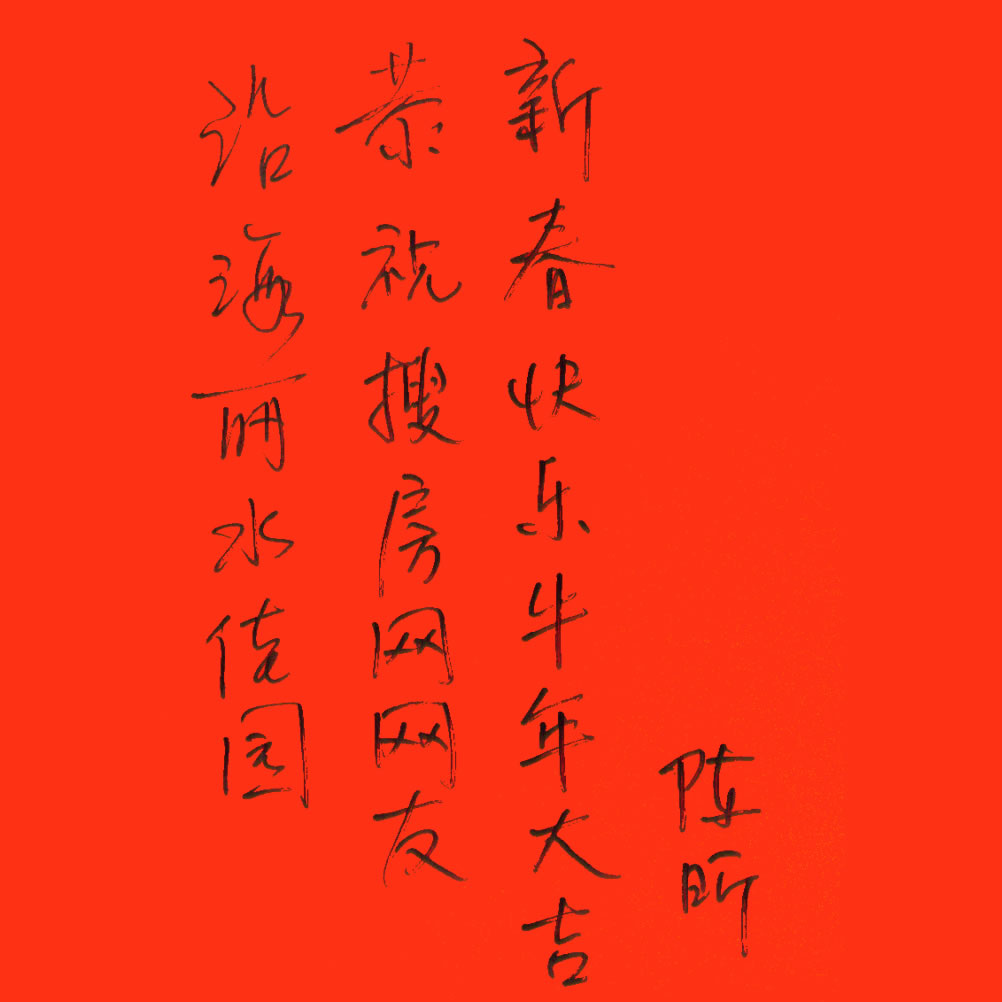 沿海丽水佳园
恭祝搜房网网友
新春快乐牛年大吉
陈昕